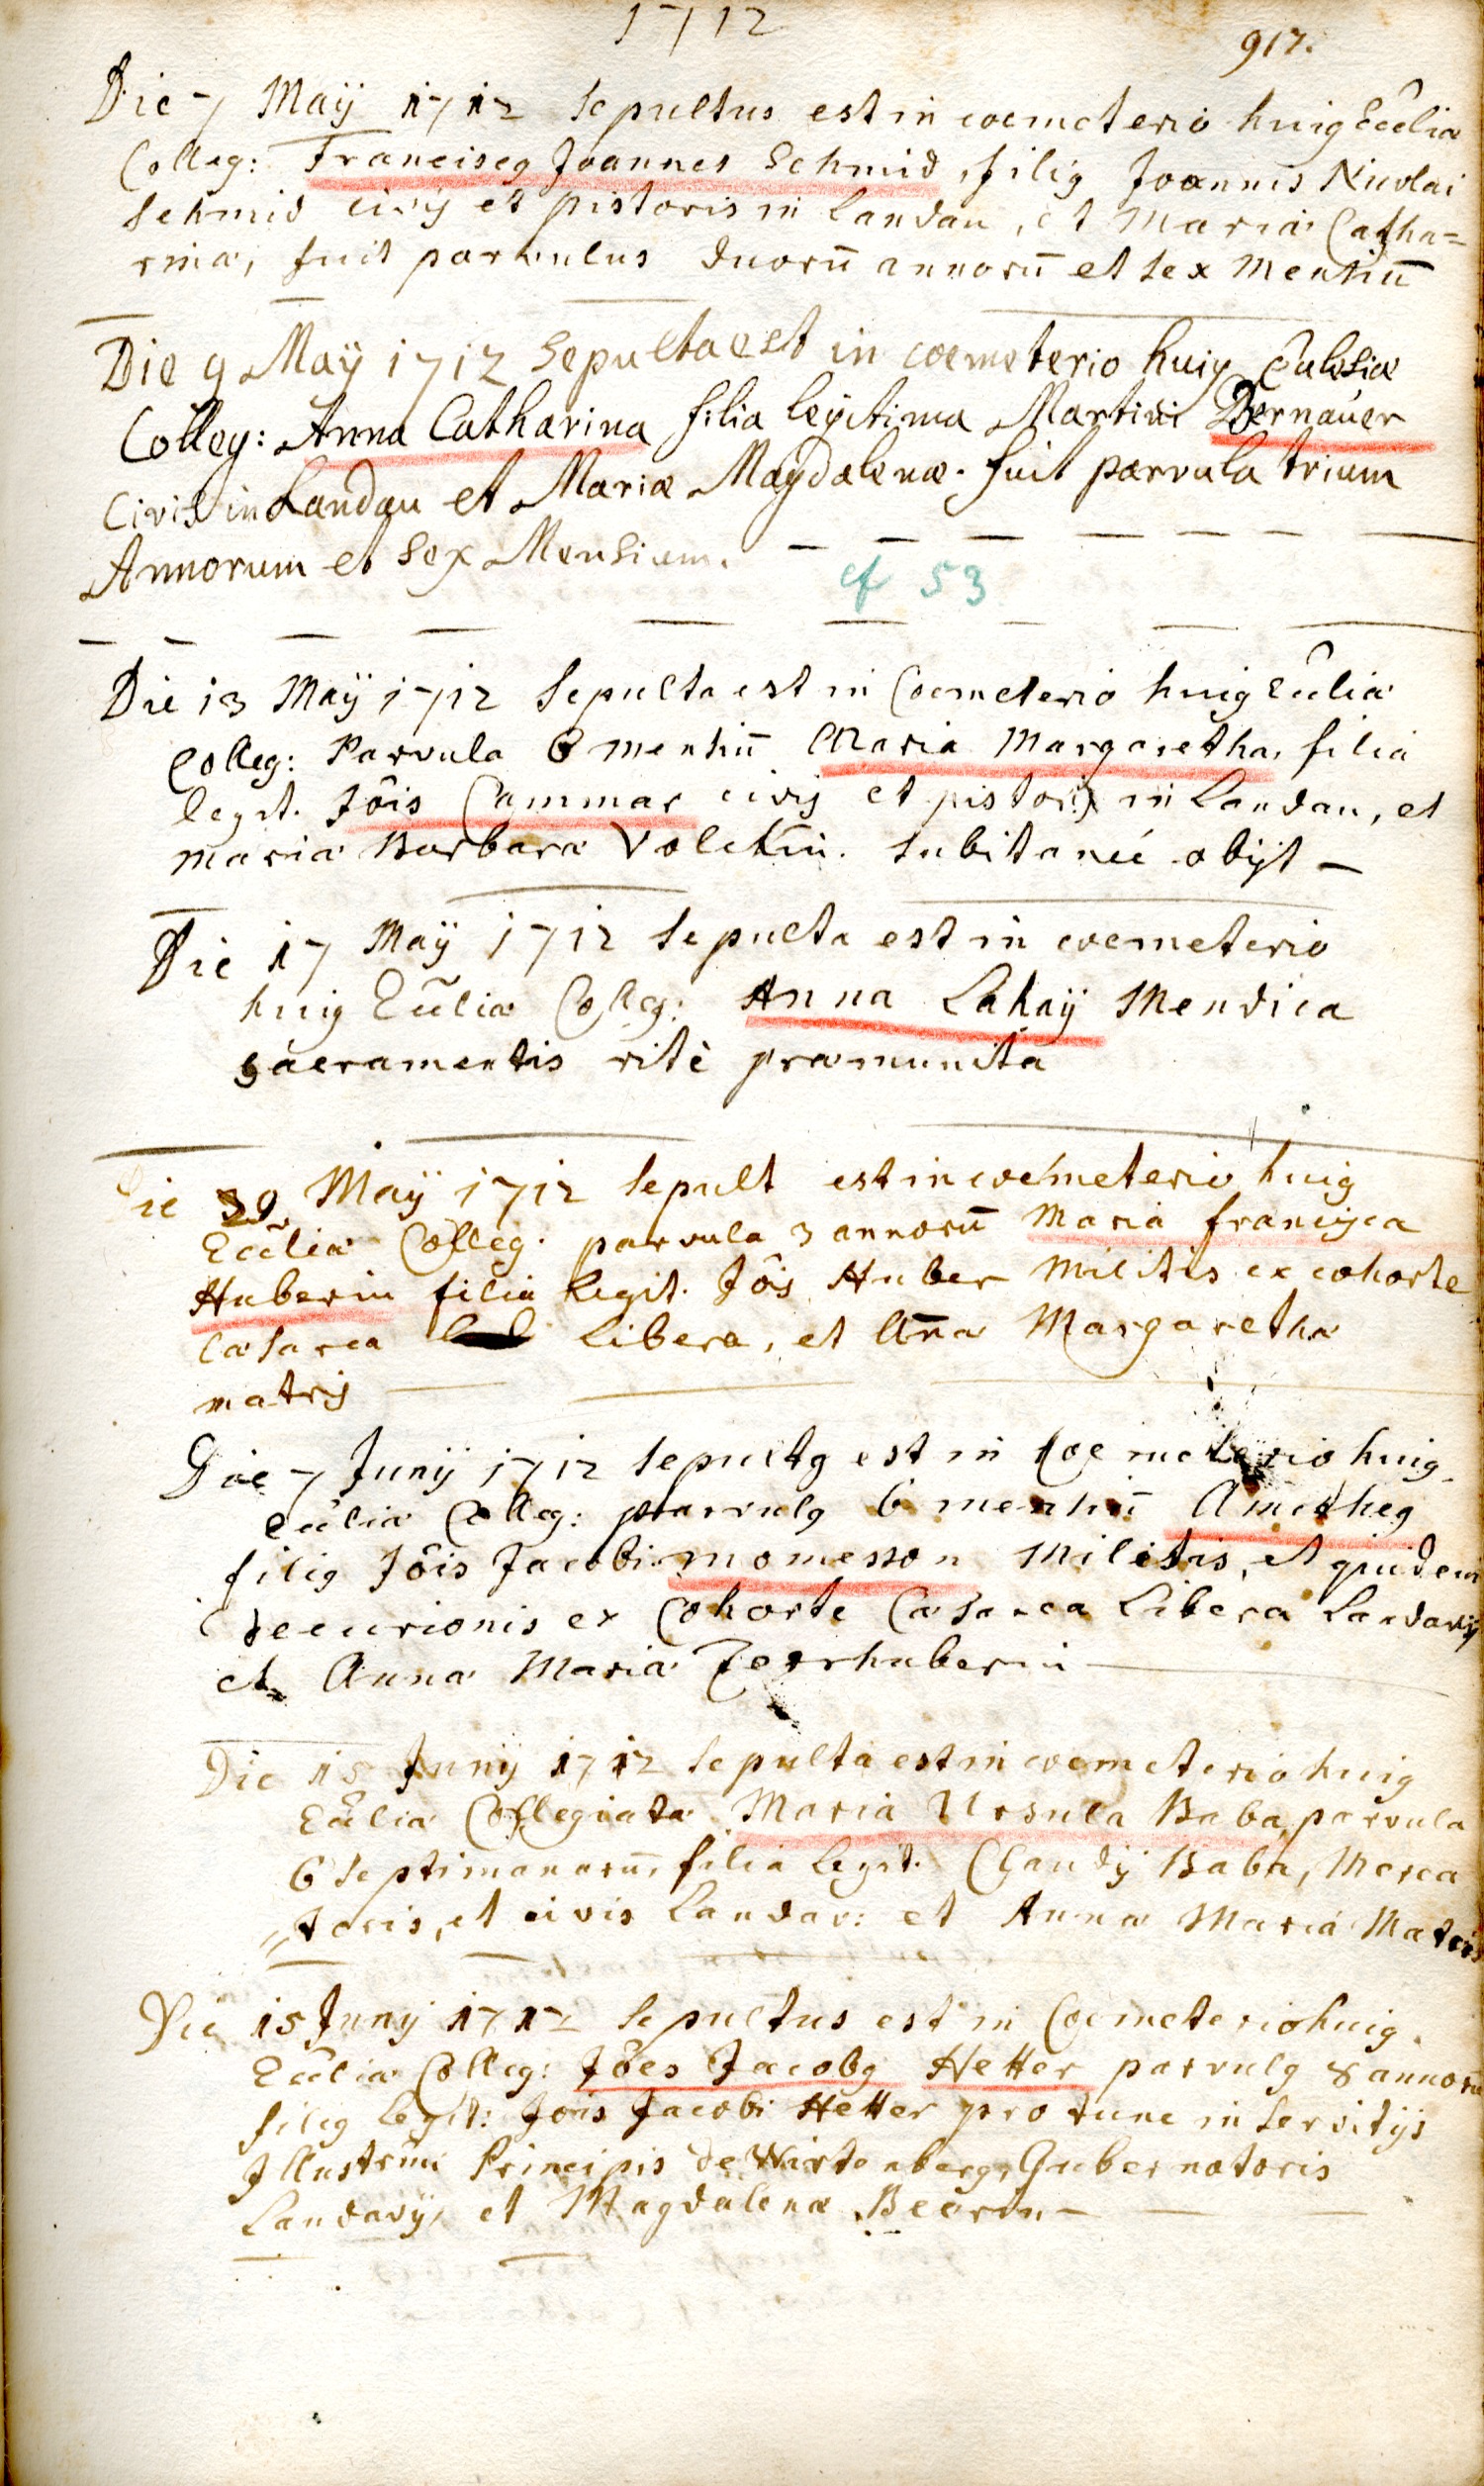 1712
917.
Die 7 Maÿ 1712 Sepultus est in coemeterio huig Ecclia
Colleg: Franciscg Joannes Schmid, filig Joannis Nicolai
Schmid civis et pistoris in Landau, et Maria Catha=
rina, fuit parvulus duorū annorū et sex Mensiū
Die 9 Maÿ 1712 Sepulta est in coemeterio huig Eclesiæ
Colleg: Anna Catharina filia legitima Martini Bernauer
Civis in Landau et Mariæ Magdalenæ. fuit parvula trium
Annorum et Sex Mensium.
cf 53
Die 13 Maÿ 1712 Sepulta est in Coemeterio huig Ecclia
Colleg: Parvula 6 mensiū Maria Margaretha, filia
legit. Jōis Cammar civis et pistoris in Landau, et
Maria Barbara subitaneé obÿt
Die 17 Maÿ 1712 Sepulta est in coemeterio
huig Ecclia Colleg: Anna Lahaÿ Mendica
Sacramentis ritè præmunita
Die 29 Maÿ 1712 Sepult est in coemeterio huig
Ecclia Colleg. parvula 3 annorū Maria francisca
Huberin filia legit. Jōis Huber Militis ex cohorte
Cæsarea Libera, et Ana Margaretha
matris
Die 7 Junÿ 1712 Sepultg est in Coemeterio huig
Ecclia Colleg: parvulg 6 mensiū Amatheg
filig Jōis Jacobi Momesson Militis, et quidem
decurionis ex Cohorte Cæsarea Libera Landavÿ
et Anna Maria Zerrhuberin
Die 15 Junÿ 1712 Sepulta est in coemeterio huig
Ecclia Collegiata Maria Ursula Baba, parvula
6 septimanarū, filia legit. Claudÿ Baba, Merca
=toris, et civis Landav: et Anna Maria Matris
Die 15 Junÿ 1712 Sepultus est in Coemeterio huig
Ecclia Colleg: Jōes Jacobg Hetter parvulg 8 annorū
filig legit: Jōis Jacobi Hetter pro tunc in servitÿs
Illustrmi Principis de Wirtenberg, Gubernatoris
Landavÿ, et Magdalenæ Beerin